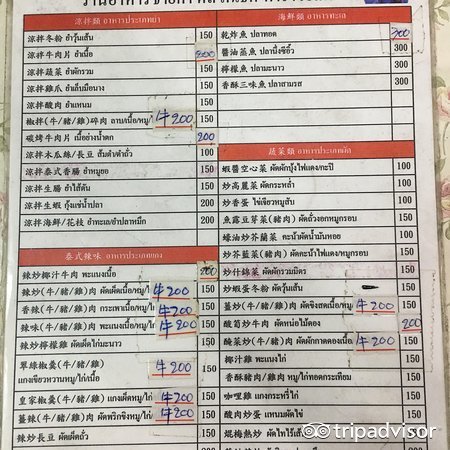 涼拌類 อาหารประเภทยำ
涼拌冬粉 ยำวุ้นเส้น 150
涼拌牛肉片 ยำเนื้อ 200
涼拌蔬菜 ยำผักรวม 150
涼拌雞爪 ยำเล็บมือนาง 150
涼拌酸肉 ยำแหนม 150
椒拌(牛/豬/雞)碎肉 ลาบเนื้อ/หมู/ 牛200
碳烤牛肉片 เนื้อย่างน้ำตก 200
涼拌木瓜絲/長豆 ส้มตำ/ตำถั่ว 100
涼拌泰式香腸 ยำหมูยอ 150
涼拌生腸 ยำไส้ตัน 150
涼拌生蝦 กุ้งแช่น้ำปลา 200
涼拌海鮮/花枝 ยำทะเล/ยำปลาหมึก 200
泰式辣味 อาหารประเภทแกง
辣炒椰汁牛肉 พะแนงเนื้อ 200
辣炒(牛/豬/雞)肉 ผัดเผ็ดเนื้อ/หมู/ 牛200 150
香辣(牛/豬/雞)肉 กระเพาเนื้อ/หมู/ 牛200 150
辣味(牛/豬/雞)肉 พะแนงเนื้อ/หมู/ 牛200 150
辣炒檸檬雞 ผัดเผ็ดไก่มะนาว 150
翠綠椒羹(牛/豬/雞) 牛200
แกงเขียวหวานหมู/ไก่/เนื้อ 150
皇家椒羹(牛/豬/雞) แกงเผ็ดหมู/ไก่/ 牛200 150
薑辣(牛/豬/雞)肉 ผัดพริกขิงหมู/ไก่/ 牛200 150
辣炒長豆 ผัดเผ็ดถั่ว 150
海鮮類 อาหารประเภททะเล
乾炸魚 ปลาทอด 300
醬油蒸魚 ปลานึ่งซีอิ๊ว 300
檸檬魚 ปลามะนาว 300
香酥三味魚 ปลาสามรส 300
蔬菜類 อาหารประเภทผัด
蝦醬空心菜 ผัดผักบุ้งไฟแดง/กะปิ 100
炒高麗菜 ผัดกระหล่ำ 100
炒香蛋 ไข่เจียวหมูสับ 100
魚露豆芽菜(豬肉) ผัดถั่วงอกหมูกรอบ 100
蠔油炒芥蘭菜 คะน้าผัดน้ำมันหอย 100
炒芥藍菜(豬肉) ผัดคะน้าไฟแดง/หมูกรอบ 150
炒什錦菜 ผัดผักรวมมิตร 150
炒蝦蛋冬粉 ผัดวุ้นเส้น
薑炒(牛/豬/雞)肉 ผัดขิงสดเนื้อ/หมู/ 牛200 150
酸筍炒牛肉 ผัดหน่อไม้ดอง 200
醃菜炒(牛/豬/雞)肉 ผัดผักกาดดอง 牛200 150
椰汁雞 พะแนงไก่ 150
香酥豬肉/雞肉 หมู/ไก่ทอดกระเทียม 150
咖哩雞 แกงกระหรี่ไก่ 150
酸肉炒蛋 แหนมผัดไข่ 150
tripadvisor